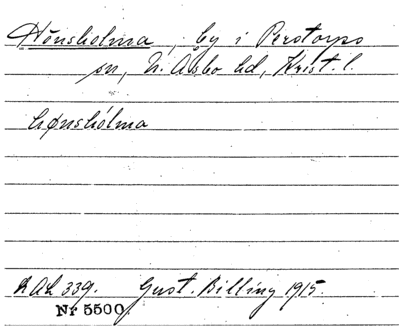 Hönsholma, by i Perstorps
sn, N. Åsbo hd, Krist. l.
hønshólma
LAL 339. Gust. Billing 1915.
Nr 5500.